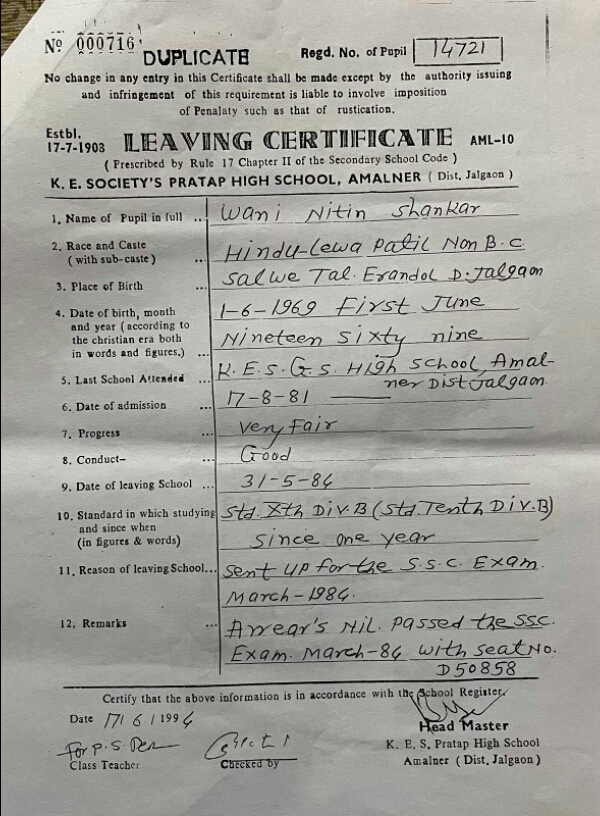 No 000716
DUPLICATE
Regd. No. of Pupil 14721
No change in any entry in this Certificate shall be made except by the authority issuing
and infringement of this requirement is liable to involve imposition
of Penalaty such as that of rustication.
Estbl.
17-7-1908 LEAVING CERTIFICATE AML-10
( Prescribed by Rule 17 Chapter II of the Secondary School Code )
K. E. SOCIETY'S PRATAP HIGH SCHOOL, AMALNER ( Dist. Jalgaon )
1. Name of Pupil in full ... Wani Nitin Shankar
2. Race and Caste
(with sub-caste) ... Hindu-Lewa Patil Non B.C.
3. Place of Birth ... Salwe Tal. Erandol D. Jalgaon
4. Date of birth, month 1-6-1969 First June
and year ( according to
the christian era both Nineteen Sixty nine
in words and figures.) ...
5. Last School Attended ... K.E.S.G.S. High School, Amal-
ner Dist Jalgaon
6. Date of admission ... 17-8-81
7. Progress ... Very Fair
8. Conduct- ... Good
9. Date of leaving School ... 31-5-84
10. Standard in which studying Std. Xth Div.B (Std. Tenth Div.B)
and since when
(in figures & words) Since one year
11. Reason of leaving School... Sent up for the S.S.C. Exam.
March-1984.
12. Remarks ... Arrear's Nil. Passed the SSC.
Exam. March-84 with seat No.
D50858
Certify that the above information is in accordance with the School Register.
Date 17/6/1994
Head Master
For P.S.
K. E. S. Pratap High School
Class Teacher Checked by Amalner ( Dist. Jalgaon )